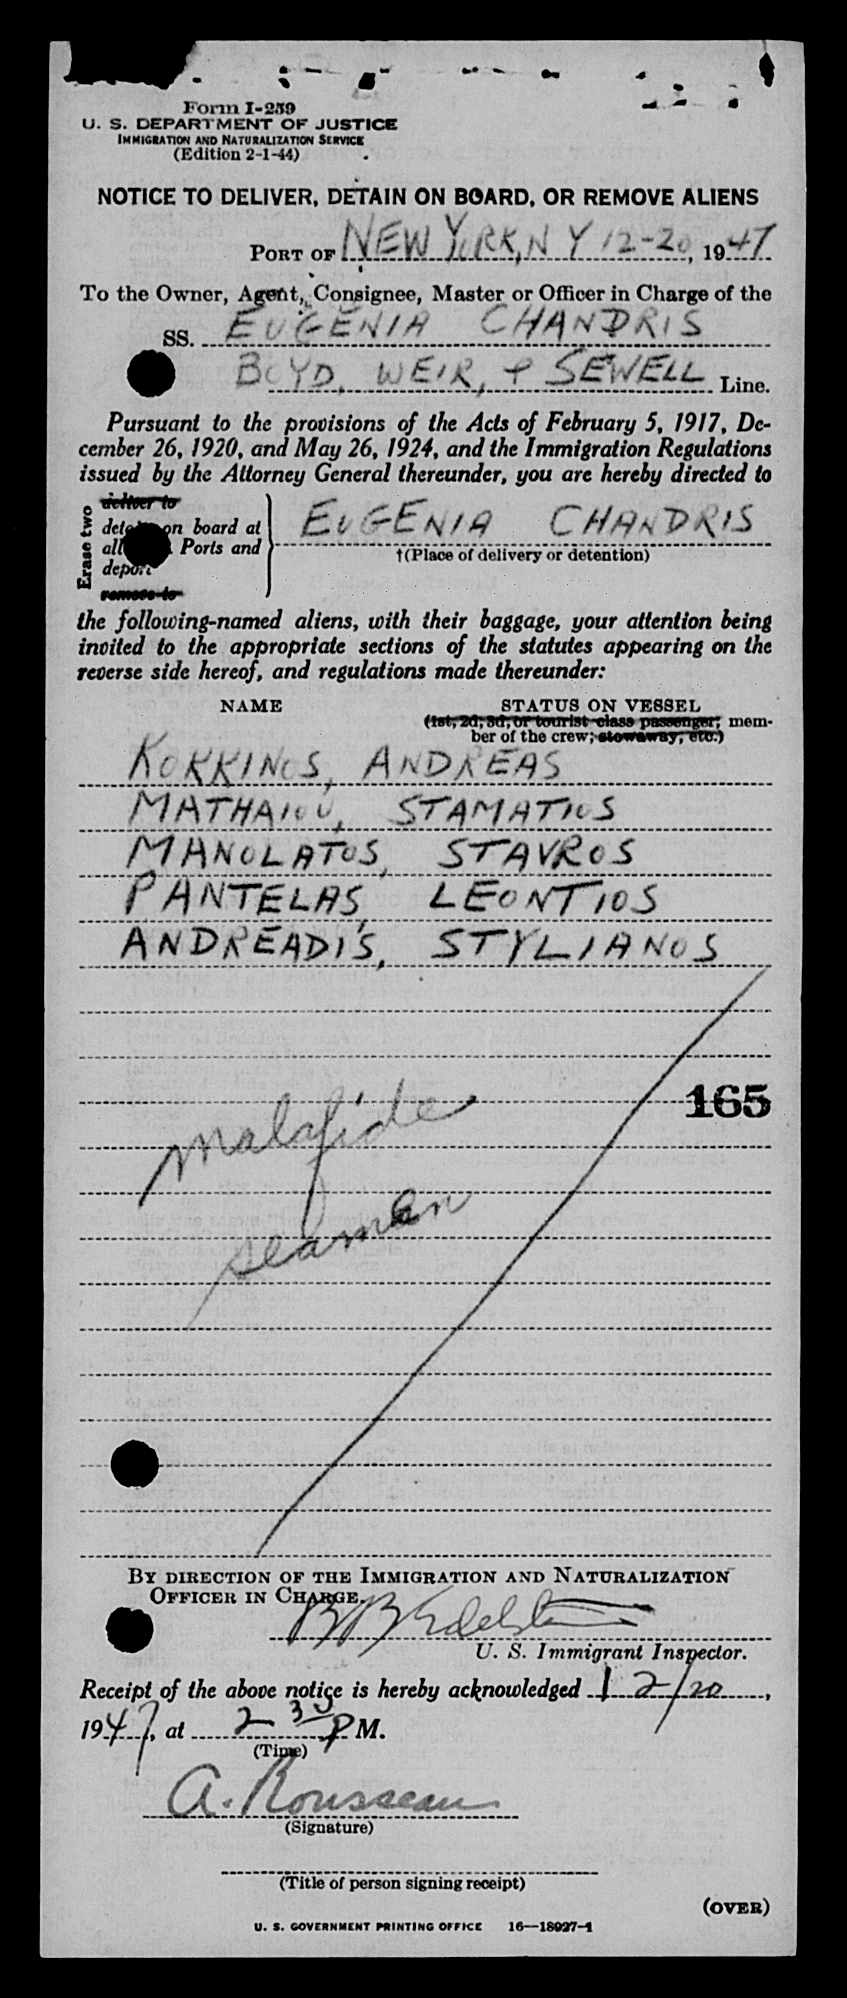 Form I-259
U. S. DEPARTMENT OF JUSTICE
IMMIGRATION AND NATURALIZATION SERVICE
(Edition 2-1-44)
NOTICE TO DELIVER, DETAIN ON BOARD, OR REMOVE ALIENS
PORT OF NEW YORK, N Y 12-20, 1947
To the Owner, Agent, Consignee, Master or Officer in Charge of the
SS. EUGENIA CHANDRIS
BOYD, WEIR, & SEWELL Line.
Pursuant to the provisions of the Acts of February 5, 1917, De-
cember 26, 1920, and May 26, 1924, and the Immigration Regulations
issued by the Attorney General thereunder, you are hereby directed to
Erase two
deliver to
on board at
Ports and
remove to
EUGENIA CHANDRIS
†(Place of delivery or detention)
the following-named aliens, with their baggage, your attention being
invited to the appropriate sections of the statutes appearing on the
reverse side hereof, and regulations made thereunder:
NAME STATUS ON VESSEL
(1st, 2d, 3d, or tourist class passenger; mem-
ber of the crew; stowaway, etc.)
KOKKINOS, ANDREAS
MATHAIOU, STAMATIOS
MANOLATOS, STAVROS
PANTELAS, LEONTIOS
ANDREADIS, STYLIANOS
165
malafide
seaman
BY DIRECTION OF THE IMMIGRATION AND NATURALIZATION
OFFICER IN CHARGE.
U. S. Immigrant Inspector.
Receipt of the above notice is hereby acknowledged 12/20,
1947, at 2 30 P M.
(Time)
A. Rousseau
(Signature)
(Title of person signing receipt)
(OVER)
U. S. GOVERNMENT PRINTING OFFICE 16—18027-1